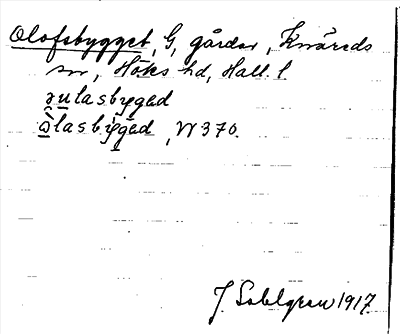 Olofsbygget, G, gårdar, Knäreds
sn, Höks hd, Hall. l
ulasbyged
ɷlasbyged, W 370.
J Sahlgren 1917.